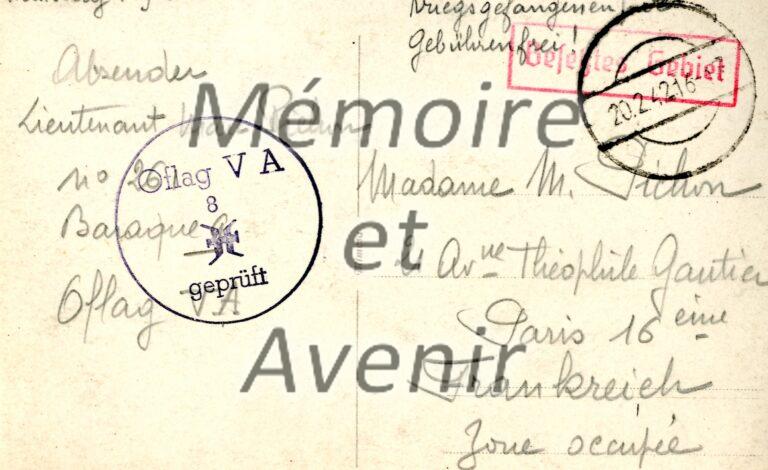 Kriegsgefangenen
Gebührenfrei!
Besetztes Gebiet
20.2.42.16
Absender
Lieutenant
n° 26
Baraque
Oflag V A
Oflag V A
8
geprüft
Madame M. Pichon
Avnue Théophile Gautier
Paris 16 eine
Frankreich
Zone occupée
Mémoire
et
Avenir